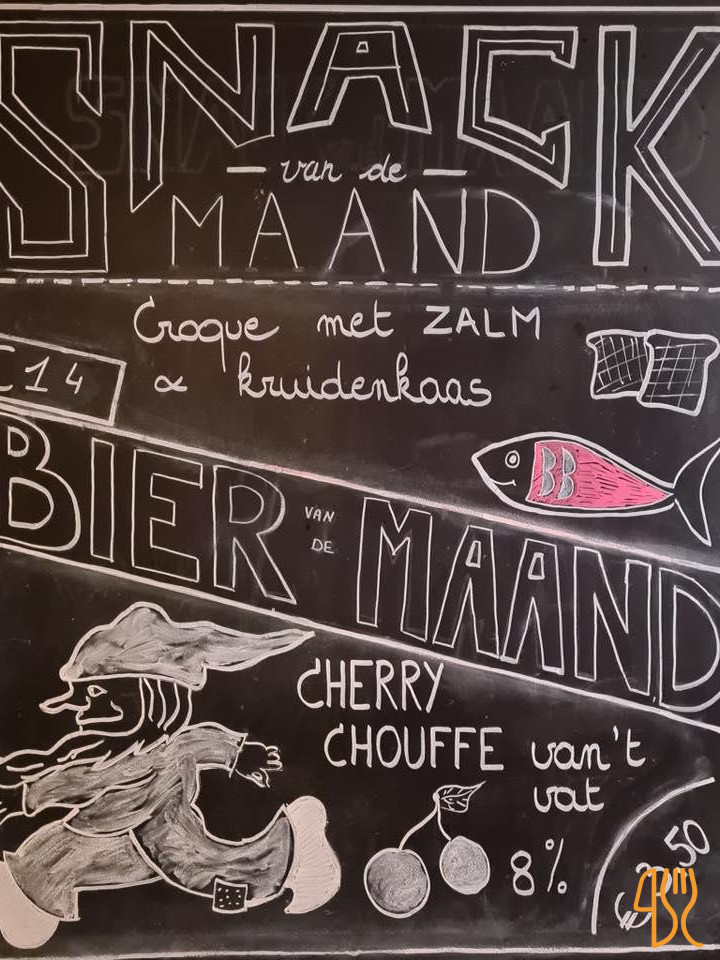 SNACK
van de
MAAND
Croque met ZALM
& kruidenkaas
€14
BIER VAN DE MAAND
CHERRY
CHOUFFE van't
vat
8%